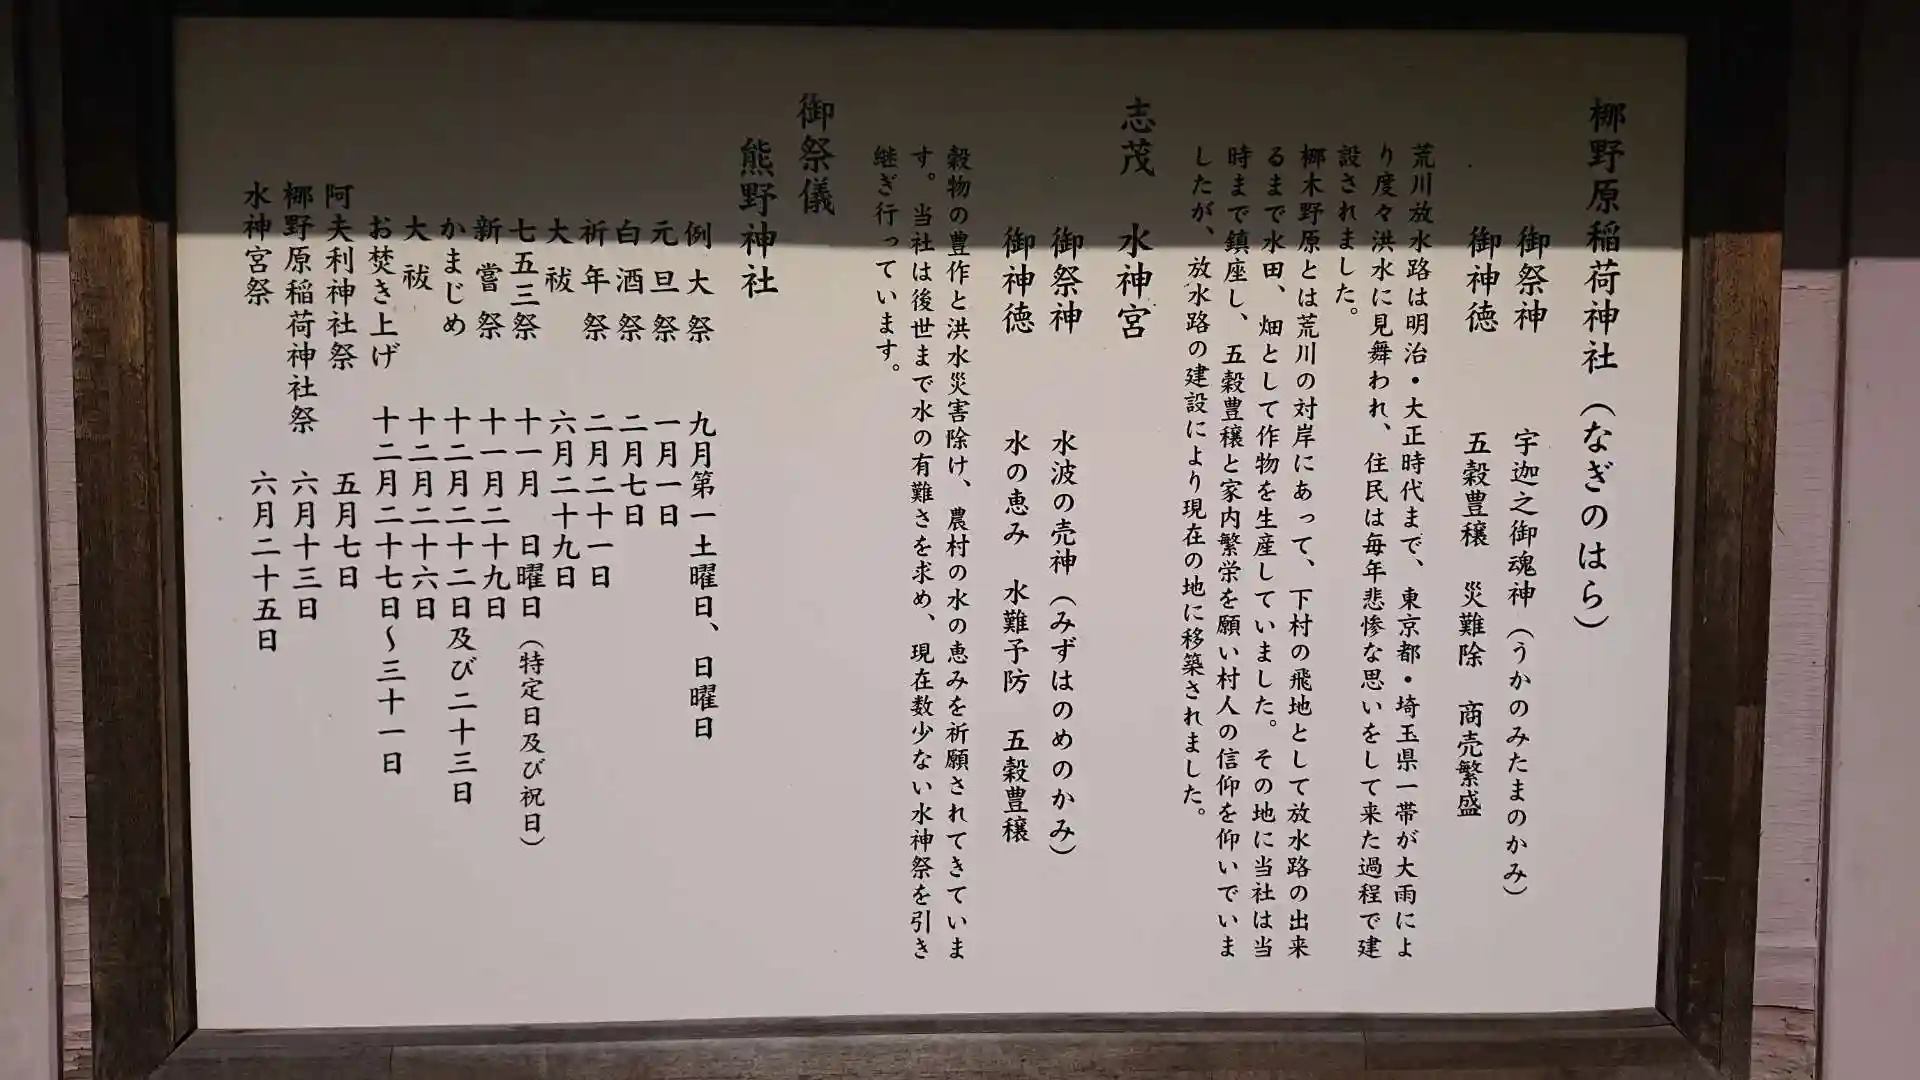 梛野原稲荷神社（なぎのはら）
御祭神　宇迦之御魂神（うかのみたまのかみ）
御神徳　五穀豊穣　災難除　商売繁盛
荒川放水路は明治・大正時代まで、東京都・埼玉県一帯が大雨によ
り度々洪水に見舞われ、住民は毎年悲惨な思いをして来た過程で建
設されました。
梛木野原とは荒川の対岸にあって、下村の飛地として放水路の出来
るまで水田、畑として作物を生産していました。その地に当社は当
時まで鎮座し、五穀豊穣と家内繁栄を願い村人の信仰を仰いでいま
したが、放水路の建設により現在の地に移築されました。
志茂　水神宮
御祭神　水波の売神（みずはのめのかみ）
御神徳　水の恵み　水難予防　五穀豊穣
穀物の豊作と洪水災害除け、農村の水の恵みを祈願されてきていま
す。当社は後世まで水の有難さを求め、現在数少ない水神祭を引き
継ぎ行っています。
御祭儀
熊野神社
例大祭　九月第一土曜日、日曜日
元旦祭　一月一日
白酒祭　二月七日
祈年祭　二月二十一日
大祓　六月二十九日
七五三祭　十一月　日曜日（特定日及び祝日）
新嘗祭　十一月二十九日
かまじめ　十二月二十二日及び二十三日
大祓　十二月二十六日
お焚き上げ　十二月二十七日～三十一日
阿夫利神社祭　五月七日
梛野原稲荷神社祭　六月十三日
水神宮祭　六月二十五日